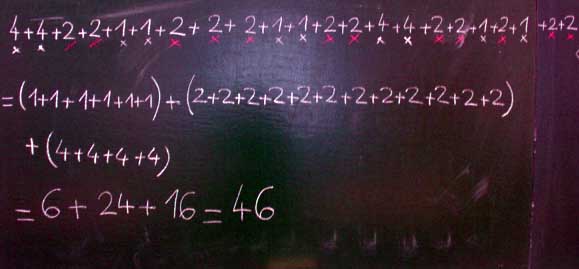 4+4+2+2+1+1+2+2+2+1+1+2+2+4+4+2+2+1+2+1+2+2
=(1+1+1+1+1+1)+(2+2+2+2+2+2+2+2+2+2+2+2)
+(4+4+4+4)
=6+24+16=46